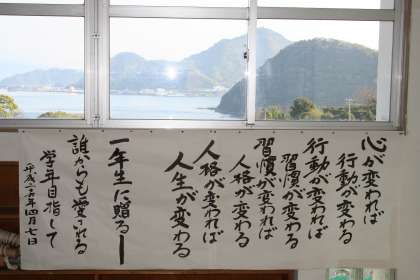 心が変われば
行動が変わる
行動が変われば
習慣が変わる
習慣が変われば
人格が変わる
人格が変われば
人生が変わる
一年生に贈る―
誰からも愛される
学年目指して
平成二十六年四月七日